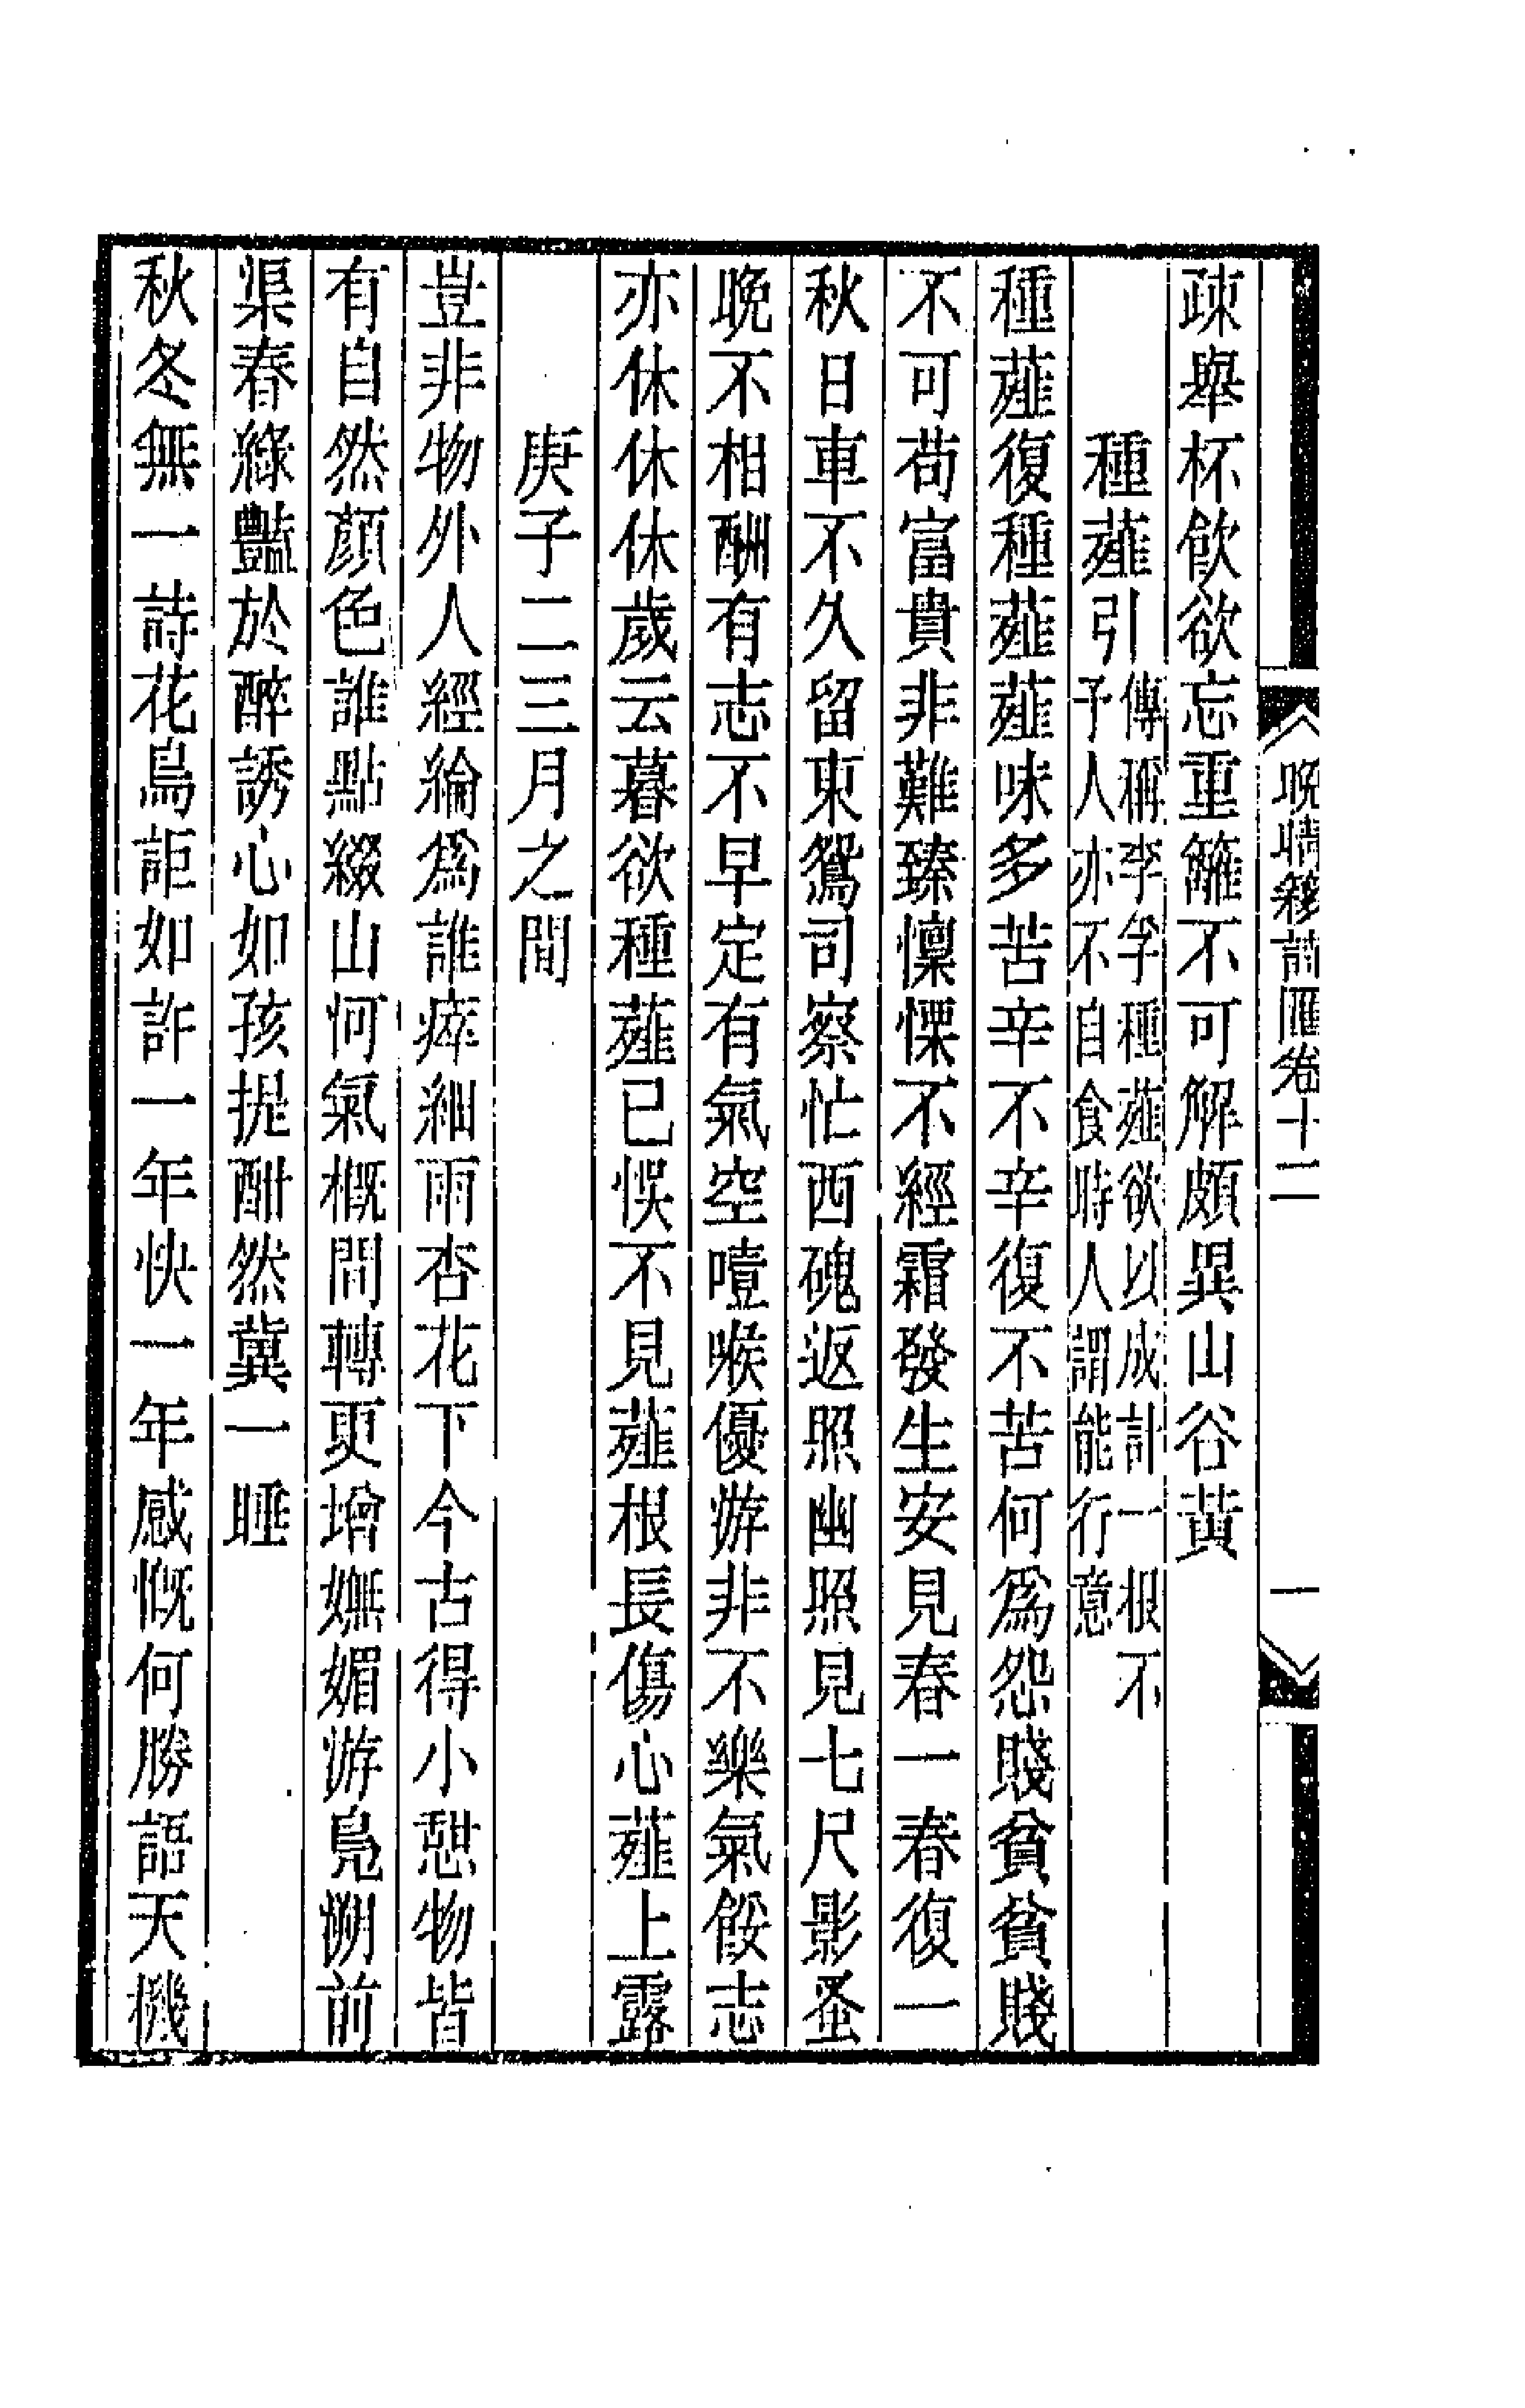 晚晴簃詩匯卷十二
一
疎舉杯飲欲忘重籬不可解頗異山谷黃
種薤引
傳稱李孚種薤欲以成計一根不
予人亦不自食時人謂能行意
種薤復種薤薤味多苦辛不辛復不苦何爲怨賤貧貧賤
不可苟富貴非難臻懍慄不經霜發生安見春一春復一
秋日車不久留東鴛司察忙西磈返照幽照見七尺影蚤
晚不相酬有志不早定有氣空噎喉優游非不樂氣餒志
亦休休休歲云暮欲種薤已悞不見薤根長傷心薤上露
庚子二三月之間
豈非物外人經綸爲誰瘁細雨杏花下今古得小憇物皆
有自然顏色誰點綴山何氣槪閒轉更增嫵媚游鳧溯前
渠春綠豔於醉誘心如孩提酣然冀一睡
秋冬無一詩花鳥詎如許一年快一年感慨何勝語天機